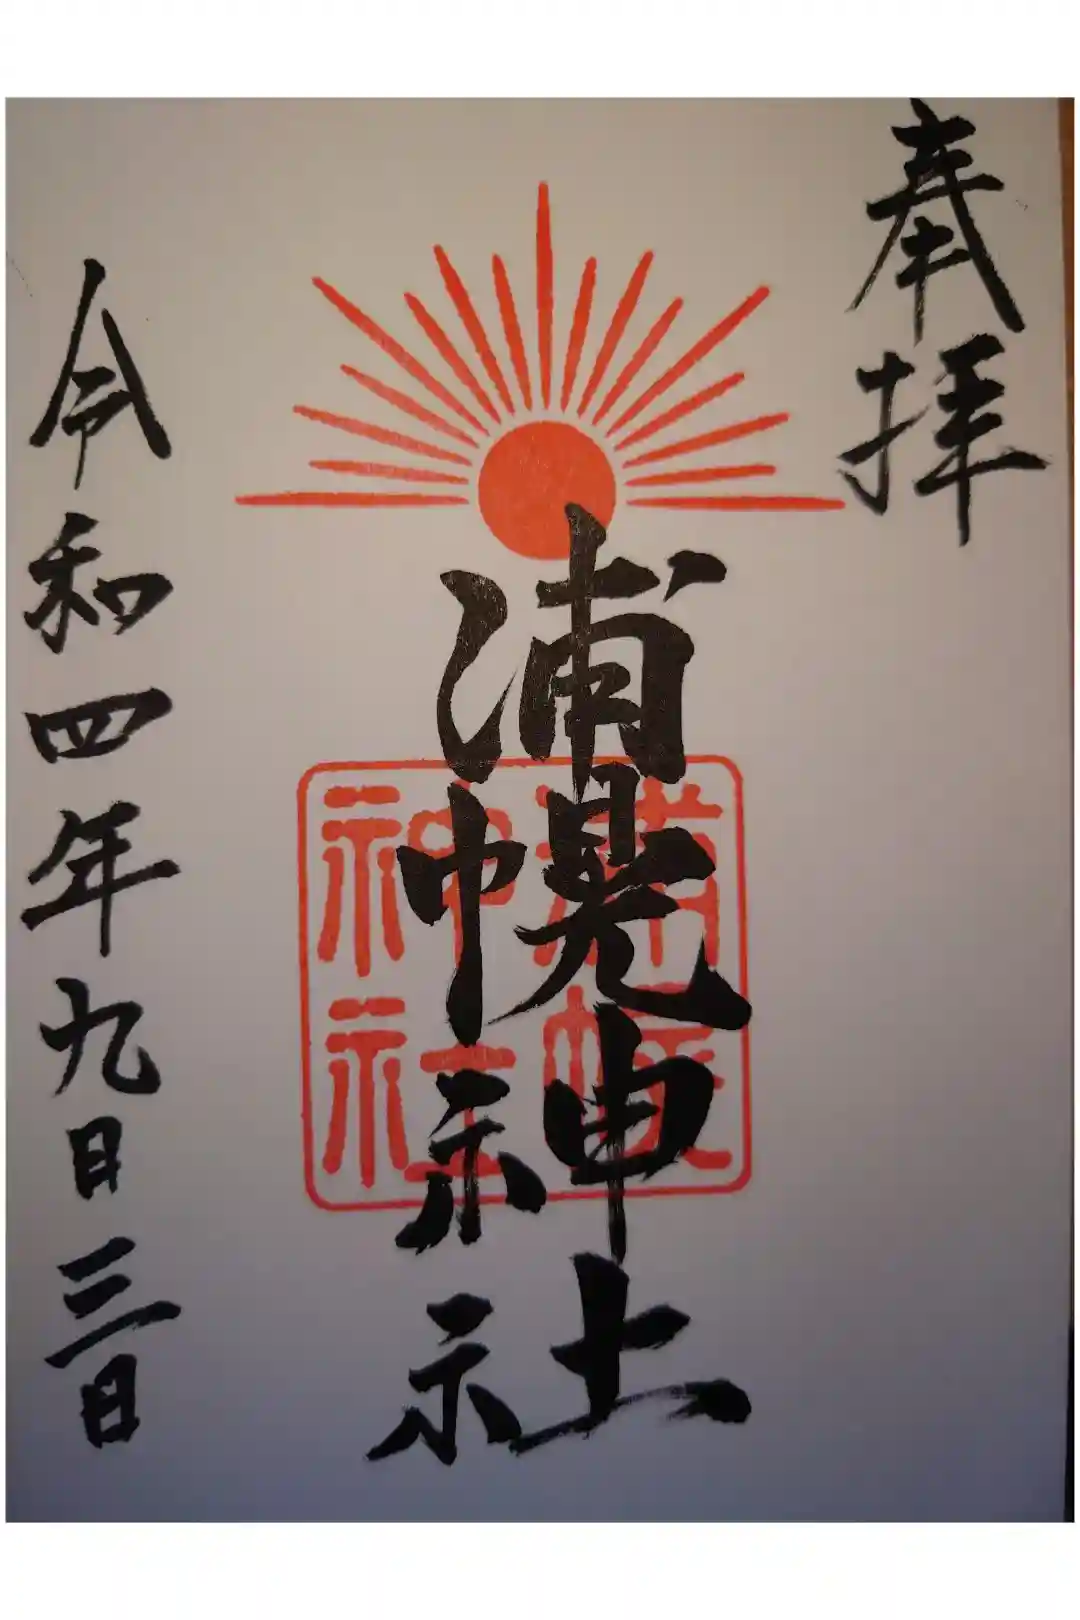 奉拝
浦幌神社
浦幌
神社
令和四年九日三日